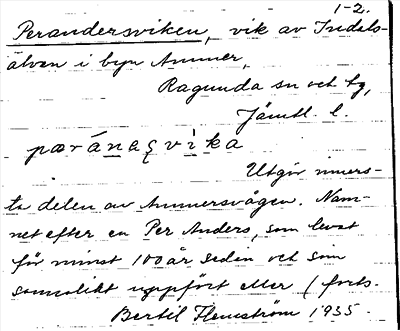 1-2.
Perandersviken, vik av Indals-
älven i byn Ammer,
Ragunda sn och tg,
Jämtl. l.
pæránaʂvika
Utgör inners-
ta delen av Ammersvågen. Nam-
net efter en Per Anders, som levat
för minst 100 år sedan och som
uppfört eller (forts.
Bertil Flemström 1935.